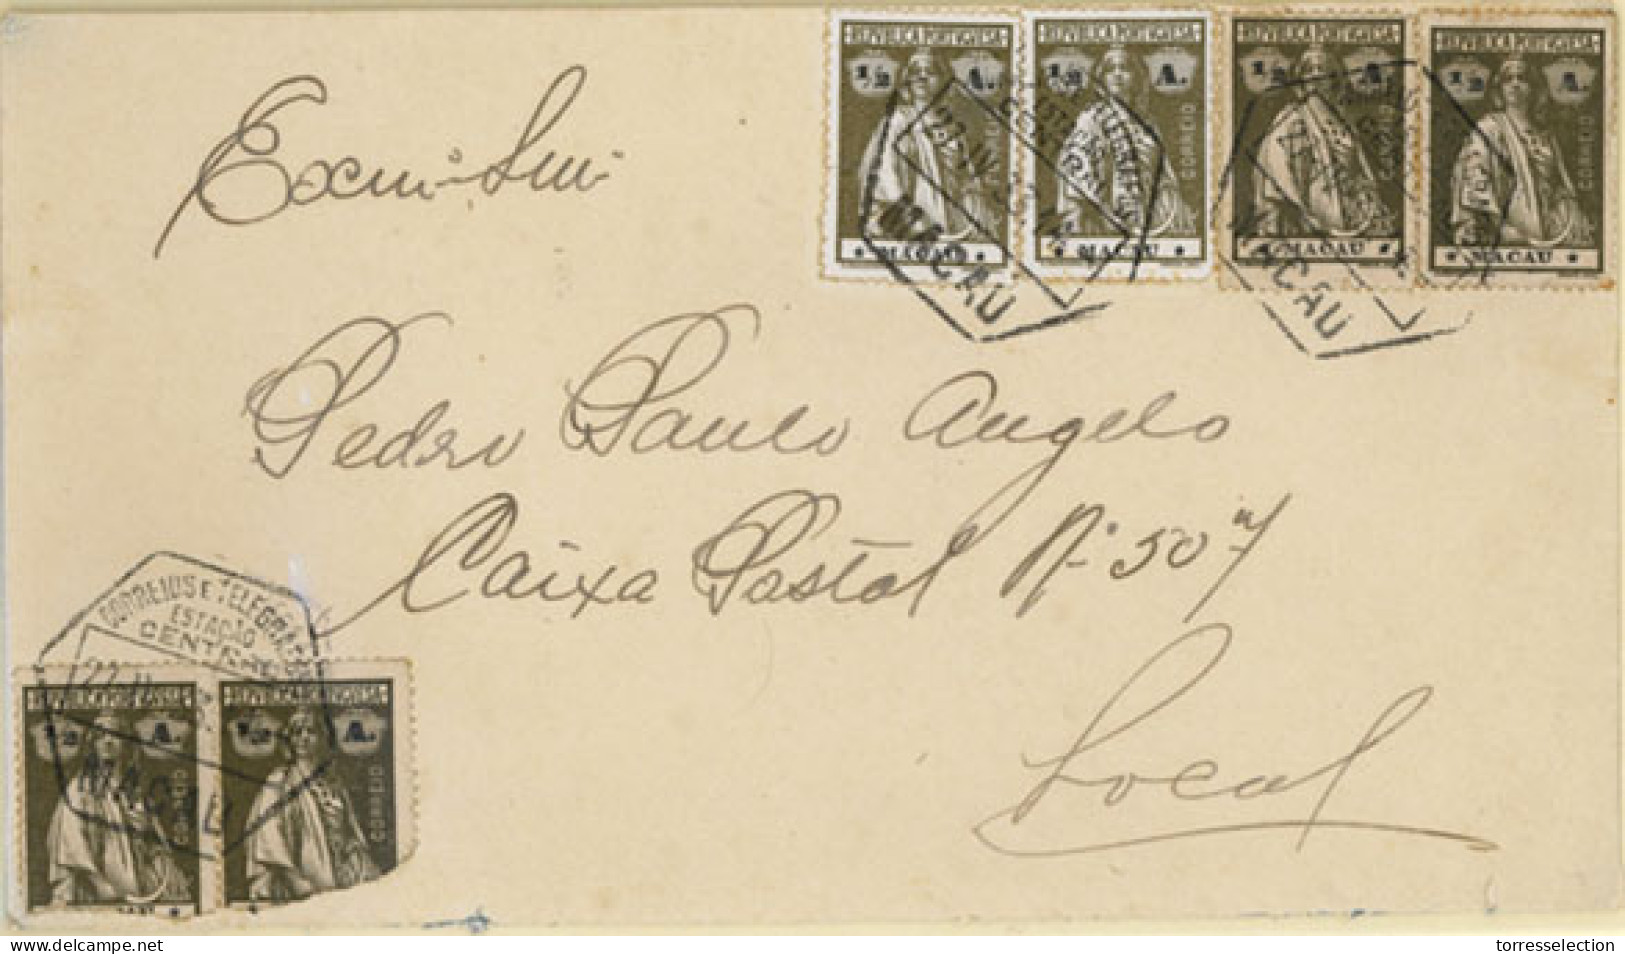 REPVBLICA PORTVGVESA
1/2 A.
CORREIO
★ MACAU ★
REPVBLICA PORTVGVESA
1/2 A.
CORREIO
★ MACAU ★
REPVBLICA PORTVGVESA
1/2 A.
CORREIO
★ MACAU ★
REPVBLICA PORTVGVESA
1/2 A.
CORREIO
★ MACAU ★
MACAU
MACAU
Exmº Snr
Pedro Paulo Angelo
Caixa Postal Nº 507
Local
CORREIOS E TELEGRAFOS
ESTAÇÃO
CENTRAL
MACAU
REPVBLICA PORTVGVESA
1/2 A.
CORREIO
REPVBLICA PORTVGVESA
1/2 A.
CORREIO
www.delcampe.net
torresselection